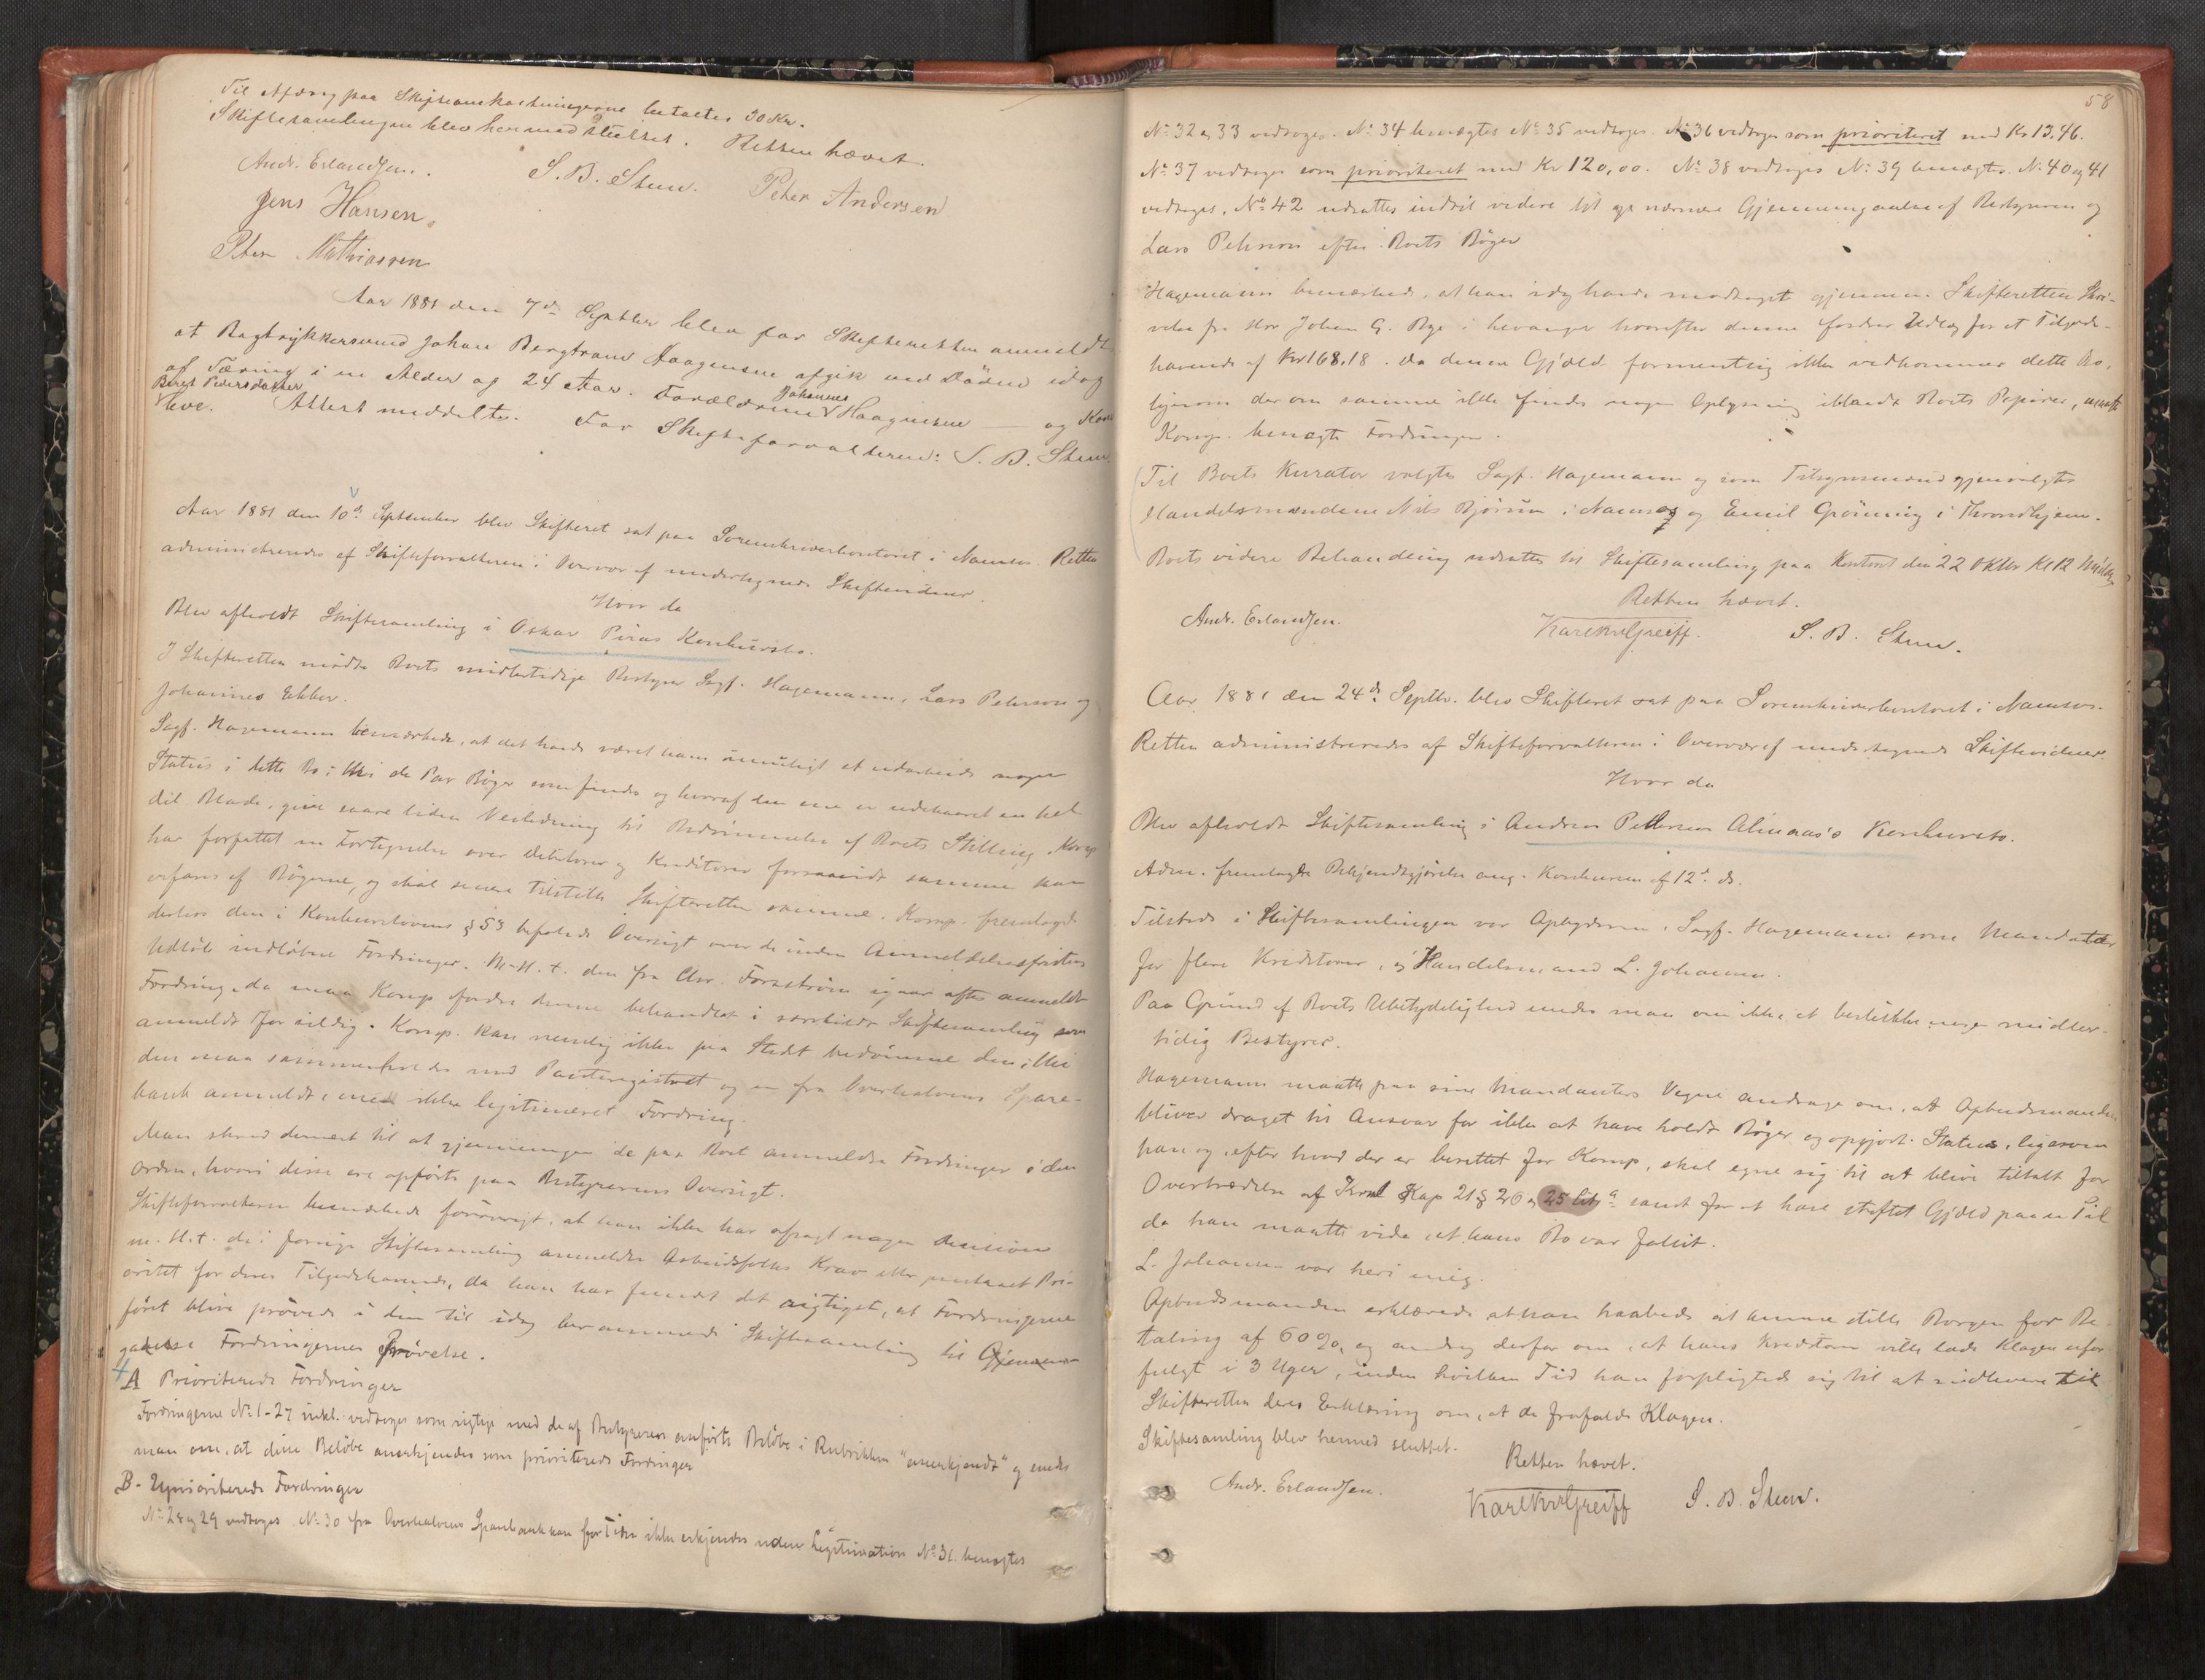 Til Afdrag paa Skifteomkostningerne betaltes 30 Kr.
Skiftesamlingen blev hermed sluttet. Retten hævet.
Andr. Erlandsen. S. B. Steen. Peter Andersen
Jens Hansen.
Peter Mathiassen
Aar 1881 den 7de Septber blev for Skifteretten anmeldt
at Bogtrykkersvend Johan Bergtraue Haagensen afgik ved Døden idag
af Tæring i en Alder af 24 Aar. Forældrene Johannes Haagensen — og
Beret Pedersdatter
leve. Attest meddeltes. For Skifteforvalteren: S. B. Steen
Aar 1881 den 10de September blev Skifteret sat paa Sorenskriverkontoret i Namsos. Retten
administreredes af Skifteforvalteren i Overvær af undertegnede Skiftevidner.
Hvor da
Blev afholdt Skiftesamling i Oskar Piras Konkursbo.
I Skifteretten mødte Boets midlertidige Bestyrer Sagf. Hagemann, Lars Peterson og
Johannes Ekker.
Sagf. Hagemann bemærkede, at det havde været ham umuligt at udarbeide nogen
Status i dette Bo; thi de Par Bøger som findes og hvoraf den ene er udskaaret en hel
del Blade, give saare liden Veiledning til Bedømmelse af Boets Stilling. Komp
har forfattet en Fortegnelse over Debitorer og Kreditorer forsaavidt samme kan
erfares af Bøgerne, og skal senere tilstille Skifteretten samme. Komp. fremlagde
derhos den i Konkurslovens § 53 befalede Oversigt over de inden Anmeldelsesfristens
Udløb indløbne Fordringer. M. H. t. den fra Chr. Forsstrøm igaar aftes anmeldte
Fordring, da maa Komp fordre denne behandlet i særskildt Skiftesamling som
anmeldt for sildig. Komp. kan nemlig ikke paa Stedet bedømme den; thi
den maa sammenholdes med Panteregistret og en fra Overhalvens Spare-
bank anmeldt, med ikke legitimeret Fordring.
Man skred dernæst til at gjennemgaa de paa Boet anmeldte Fordringer i den
Orden, hvori disse ere opførte paa Bestyrerens Oversigt.
Skifteforvalteren bemærkede forøvrigt, at han ikke har afsagt nogen Decision
m. H. t. de i forrige Skiftesamling anmeldte Arbeidsfolks Krav eller paastaaet Pri-
oritet for deres Tilgodehavende, da han har fundet det rigtigst, at Fordringerne
først blive prøvede i den til idag berammede Skiftesamling til Gjennem-
gaaelse Fordringernes Prøvelse.
A Prioriterede Fordringer
Fordringerne No 1-27 inkl. vedtoges som rigtige med de af Bestyreren anførte Beløbe i Rubrikken "anerkjendt" og enedes
man om, at disse Beløbe anerkjendes som prioriterede Fordringer
B. Uprioriterede Fordringer
No 28 og 29 vedtoges No 30 fra Overhalvens Sparebank kan for Tiden ikke erkjendes uden Legitimation No 31 benægtes
58
No 32 og 33 vedtoges. No 34 benægtes No 35 vedtoges. No 36 vedtoges som prioriteret med Kr 13,46.
No 37 vedtoges som prioriteret med Kr 120,00. No 38 vedtoges No 39 benægtes. No 40 og 41
vedtoges. No 42 udsattes indtil videre til nærmere Gjennemgaaelse af Bestyreren og
Lars Peterson efter Boets Bøger
Hagemann bemærkede, at han idag havde modtaget gjennem Skifteretten Skri-
velse fra Hr Johan G. Bye i Levanger hvorefter denne fordrer Udlæg for et Tilgode-
havende af Kr 168,18. Da denne Gjæld formentlig ikke vedkommer dette Bo,
ligesom der om samme ikke findes nogen Oplysning iblandt Boets Papirer, maatte
Komp. benægte Fordringen.
Til Boets Kurator valgtes Sagf. Hagemann og som Tilsynsmænd gjenvalgtes
Handelsmændene Nils Bjørum i Namsos og Emil Grønning i Throndhjem.
Boets videre Behandling udsattes til Skiftesamling paa Kontoret den 22 Oktbr Kl 12 Middag
Retten hævet.
Andr. Erlandsen. Karl KvGreiff. S. B. Steen.
Aar 1881 den 24de Septbr. blev Skifteret sat paa Sorenskriverkontoret i Namsos.
Retten administreredes af Skifteforvalteren i Overvær af undertegnede Skiftevidner.
Hvor da
Blev afholdt Skiftesamling i Andreas Pettersen Almaas's Konkursbo.
Adm. fremlagde Bekjendtgjørelse ang. Konkursen af 12te ds.
Tilstede i Skiftesamlingen var Opbyderen, Sagf. Hagemann som Mandatar
for flere Kreditorer, og Handelsmand L. Johansen.
Paa Grund af Boets Ubetydelighed enedes man om ikke at beskikke nogen midler-
tidig Bestyrer.
Hagemann maatte paa sine Mandanters Vegne andrage om, at Opbudsmanden
bliver draget til Ansvar for ikke at have holdt Bøger og opgjort Status, ligesom
han og, efter hvad der er berettet for Komp, skal egne sig til at blive tiltalt for
Overtrædelse af Kriml Kap 21 § 20 og 25 litr a samt for at have stiftet Gjæld paa en Tid
da han maatte vide, at hans Bo var fallit.
L. Johansen var heri enig.
Opbudsmanden erklærede at han haabede at kunne stille Borgen for Be-
taling af 60 %, og androg derfor om, at hans Kreditorer ville lade Klagen ufor-
fulgt i 3 Uger, inden hvilken Tid han forpligtede sig til at indlevere til
Skifteretten deres Erklæring om, at de frafalde Klagen.
Skiftesamling blev hermed sluttet.
Retten hævet.
Andr. Erlandsen. Karl KvGreiff S. B. Steen.